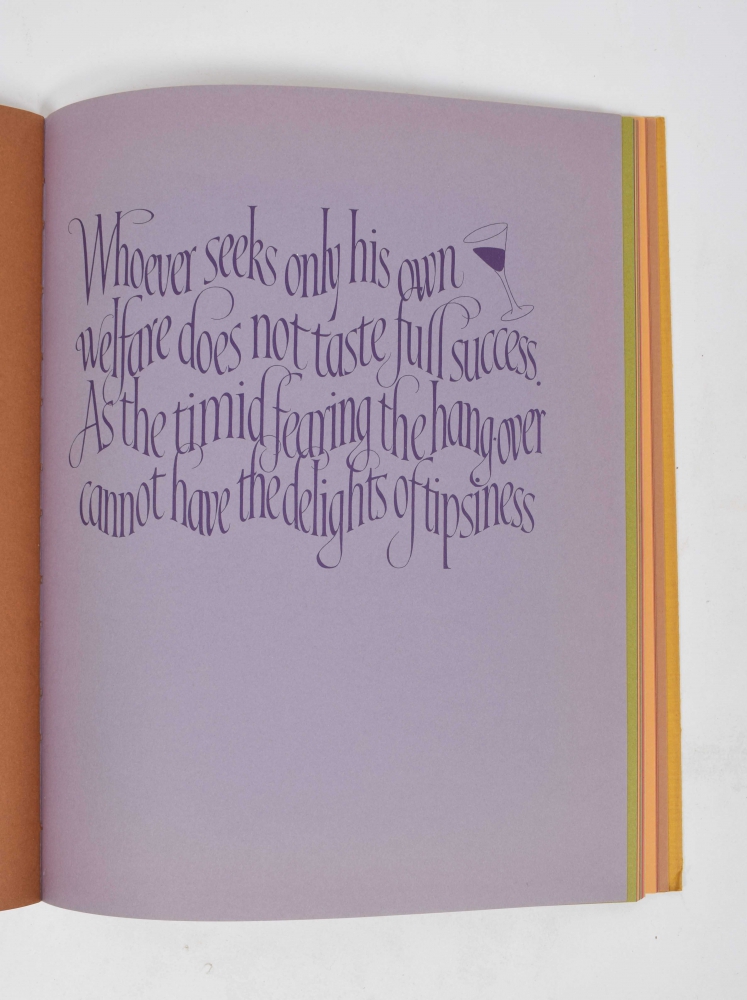 Whoever seeks only his own
welfare does not taste full success.
As the timid fearing the hang-over
cannot have the delights of tipsiness